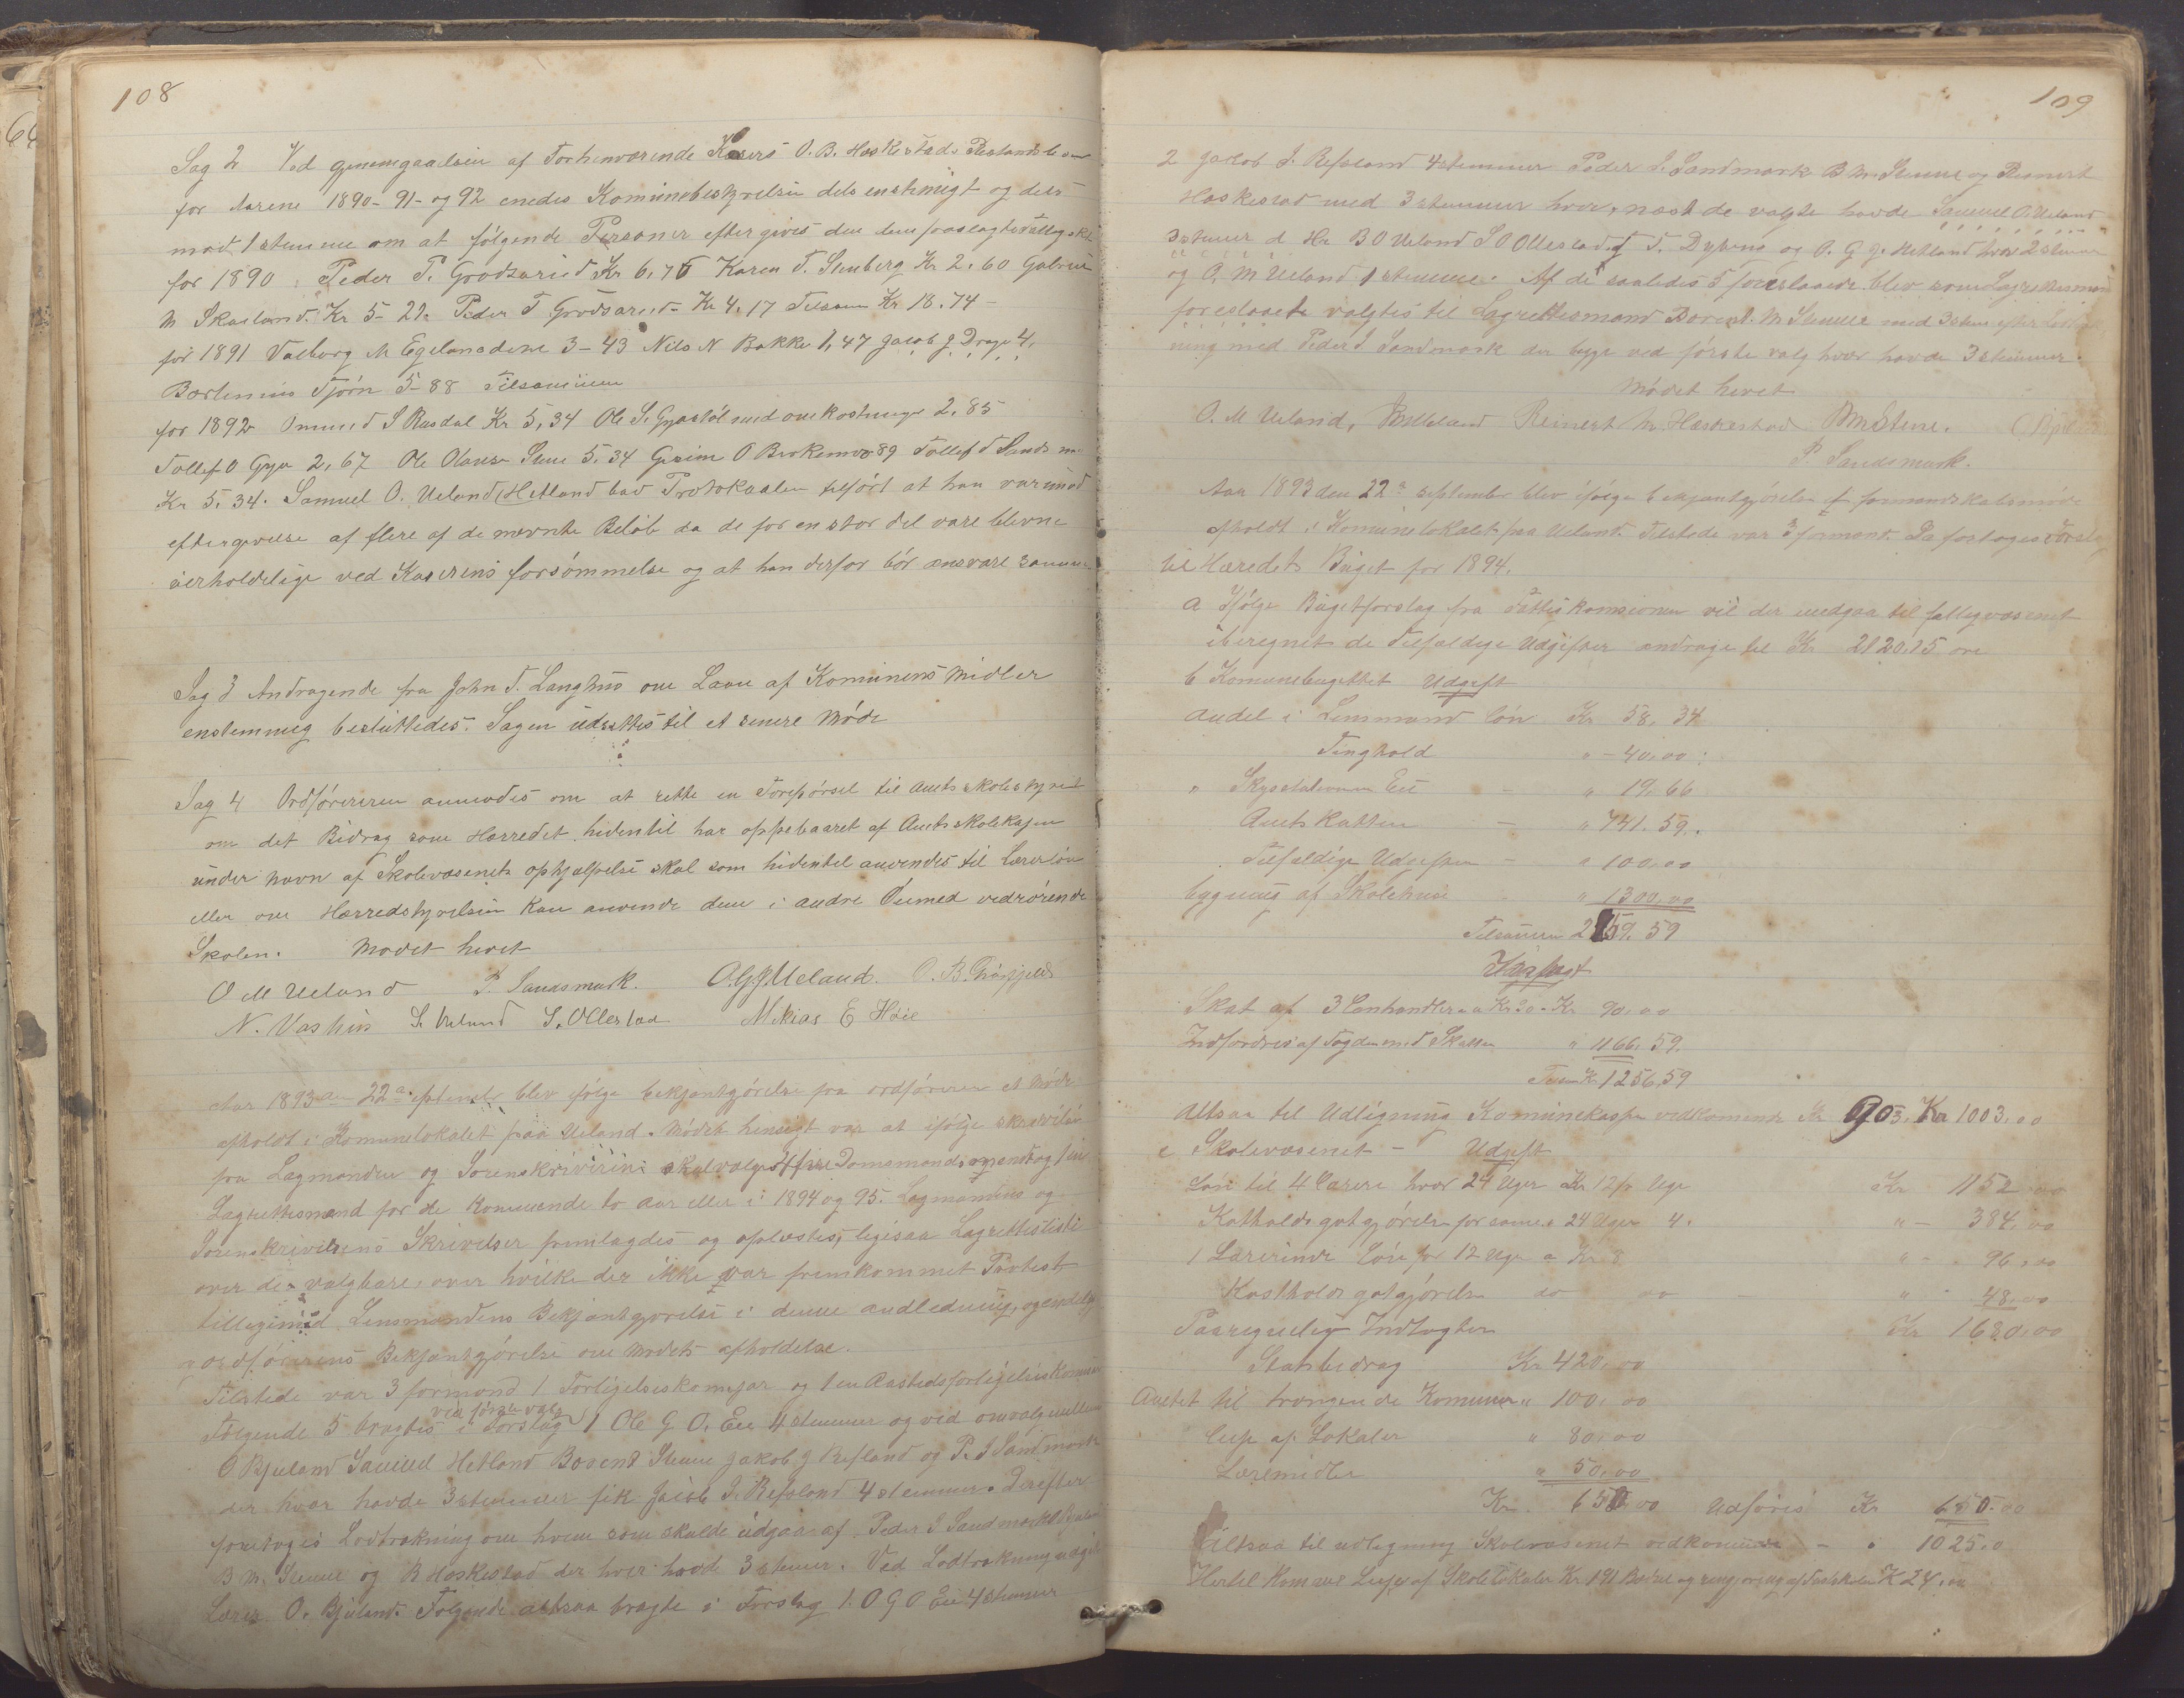 108
Sag 2 Ved gjenemgaaelsen af Forhenværende Kasers O.B. Haskestads Restandse
for Aarene 1890-91- og 92 enedes Komünebestyrelsen dels enstemigt og dels
mod 1 stemme om at følgende Personer eftergives den dem paalagte Fattigskat
for 1890 Peder P. Grødsæried Kr 6,76 Karen T. Stenberg Kr 2.60 Gabriel
M Skaaland Kr 5-21 Peder T Grødsæried Kr 4,17 Tilsam Kr 18.74 -
for 1891 Valborg M Egelandsdene 3-43 Nils N Bakke 1,47 Jacob J Drage 4,
Bertinius Tjørn 5-88 Tilsammen
for 1892 Ommund S Rusdal Kr 5,34 Ole S. Gyastøl med omkostninger 2.85
Tollef O Gya 2,67 Ole Olausen Stene 5.34 O 89 Tollef T Sands
Kr 5.34. Samuel O. Ueland (Hetland bad Protokaalen tilført at han var imod
eftergivelse af flere af de nævnte Beløb da de for en stor del vare blevne
üerholdelige ved Kaserens forsømmelse og at han derfor bør ansvare samme
Sag 3 Andragende fra John T. Langhus om Laan af Komünens Midler
enstemmig besluttedes. Sagen üdsættes til et senere Møde
Sag 4 Ordføreren anmodes om at rette en Forespørsel til Amtsskolestyret
om det Bidrag som Herredet hidentil har oppebaaret af Amtsskolekasen
ünder navn af Skolevæsenets ophjælpelse skal som hidentil anvendes til Lærerløn
eller om Herredstyrelsen Kan anvende dem i andre Øiemed vedrørende
Skolen. Mødet hevet
O M Ueland P. Sandsmark. O.G.J. Ueland. O.B.
N. Vashus S. Ueland S. Ollestad Mikias E Høie
Aar 1893 den 22de september blev ifølge bekjentgjørelse fra ordføreren et Møde
afholdt i Komunelokalet paa Ueland. Mødets hensigt var at ifølge skrivelse
fra Lagmanden og Sorenskriveren skal valges fire Domsmænd og en
Lagrettesmand for de Kommende to aar eller i 1894 og 95. Lagmandens og
Sorenskriverens Skrivelser fremlagdes og oplæstes, ligesaa Lagretteslisti
over de valgbare, over hvilke der ikke var fremkommet Protest
tilligemed Lensmandens Bekjentgjørelse i denne andledning, og endelig
ordførerens Bekjentgjørelse om Mødets afholdelse.
Tilstede var 3 formænd 1 Forligelseskomisær og 1 en Aastedsforligelseskomisær
ved første valg
Følgende 5 bragtes i Forslag 1 Ole G O. Eie 4 stemmer og ved omvalg mellem
O Bjuland Samuel Hetland Berent Stene Jakob J Refsland og P. S Sandsmark
der hvor havde 3 stemmer fik Jacob J. Refsland 4 stemmer. Derefter
foretoges Lodtrækning om hvem som skulde üdgaa af Peder S Sandsmark
B M. Stene og R Haskestad der hver havde 3 stemer. Ved Lodtrækning udgik
Lærer O. Bjuland. Følgende altsaa bragte i Forslag 1. O G O Eie 4 stemmer
109
2 Jacob J. Refsland 4 stemmer Peder S. Sandsmark B M. Stene og Reinert
Haskestad med 3 stemmer hver, næst de valgte havde Samuel O. Ueland
3 stemer Hr B O Ueland S O Ollestad T. Dyrnes og O. G J. Hetland hver 2 stemer
og O. M Ueland 1 stemme. Af de saaledes 5 foreslaaede blev som Lagrettesmand
foreslaaet valgtes til Lagrettesmand Berent M Stene med 3 stem efter
med Peder S Sandsmark der begge ved første valg hver havde 3 stemmer.
Mødet hevet
O. M Ueland, Reinert M. Haskestad BM Stene.
P. Sandsmark.
Aar 1893 den 22de september blev ifølge bekjentgjørelse formandskabsmøde
afholdt i Komunelokalet paa Ueland. Tilstede var 3 formænd. Da foretoges Forslag
til Heredets Büget for 1894.
a Ifølge Bügetforslag fra Fattigkomisionen vil der medgaa til fattigvæsenet
iberegnet de Tilfældige Udgifter andrage til Kr 2120.25 øre
b Komunebugettet Udgift
Andel i Lensmand løn Kr 58,34
Tinghold " - 40,00
" Skysstationen Eie - " 19,66
Amtskatten - " 741.59.
Tilfældige Udgifter - " 100,00
bygning af Skolehuse " 1300,00
Tilsammen 2159.59
Indtægt
Skat af 3 Lanhandlere a Kr 30 - Kr 90,00
Indfordres af Fogden med Skatten " 1166.59.
Tilsam Kr 1256,59
Altsaa til Udligning Komünekassen vedkomende Kr 903, Kr 1003,00
c Skolevæsenet - Udgift
Løn til 4 Lærere hver 24 Uger Kr 12 pr Uge Kr 1152,00
Kostholdsgotgjørelse for same a 24 Uger 4. " - 384,00
1 Lærerinde Løn for 12 Uger a Kr 8 " - 96,00
Kostholdsgotgjørelse do do - " - 48,00
Paaregnelig Indtægter Kr 1680,00
Statsbidrag Kr 420,00
Amtet til trængende Komuner " 100,00
Leie af Lokaler " 80,00
Læremidler " 50,00
Kr. 650,00 Udføres Kr 650.00
Altsaa til udligning Skolevæsenet vedkomende - " 1025,0
Hertil Kommer Leje af Skolelokaler Kr 191 Brænde og af Fastskolen K 24,00